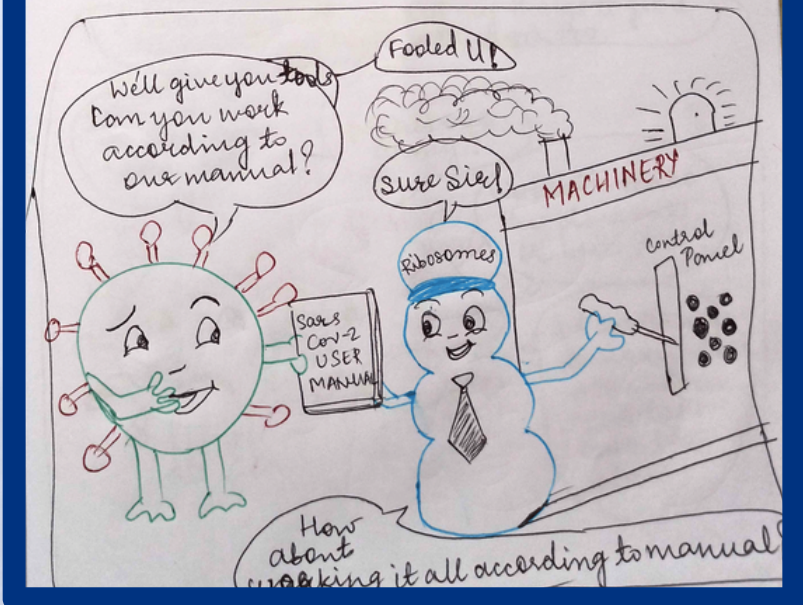 Fooled U!
We'll give you tools
Can you work
according to
our manual?
Sure Sir!
MACHINERY
Control
Panel
Ribosomes
Sars
Cov-2
USER
MANUAL
How
about
working it all according to manual?